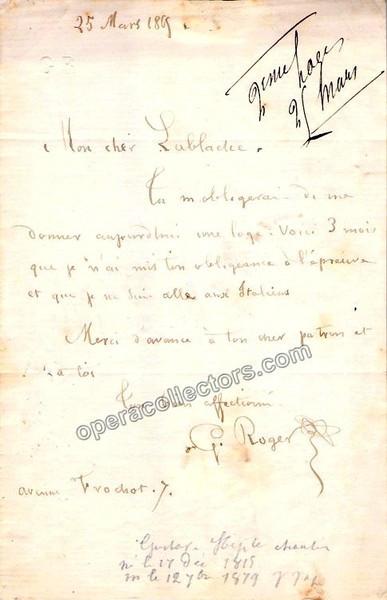 25 Mars 186
2eme loge
25 Mars
Mon cher Lablache.
Tu m'obligerai de me
donner aujourd'hui une loge. Voici 3 mois
que je n'ai mis ton obligeance à l'épreuve
et que je ne suis allé aux Italiens
Merci d'avance à ton cher patron et
à toi
Ton bien affectionné
G. Roger
avenue Frochot. 7.
operacollectors.com
né le 17 Dec 1815
m le 12 7bre 1879